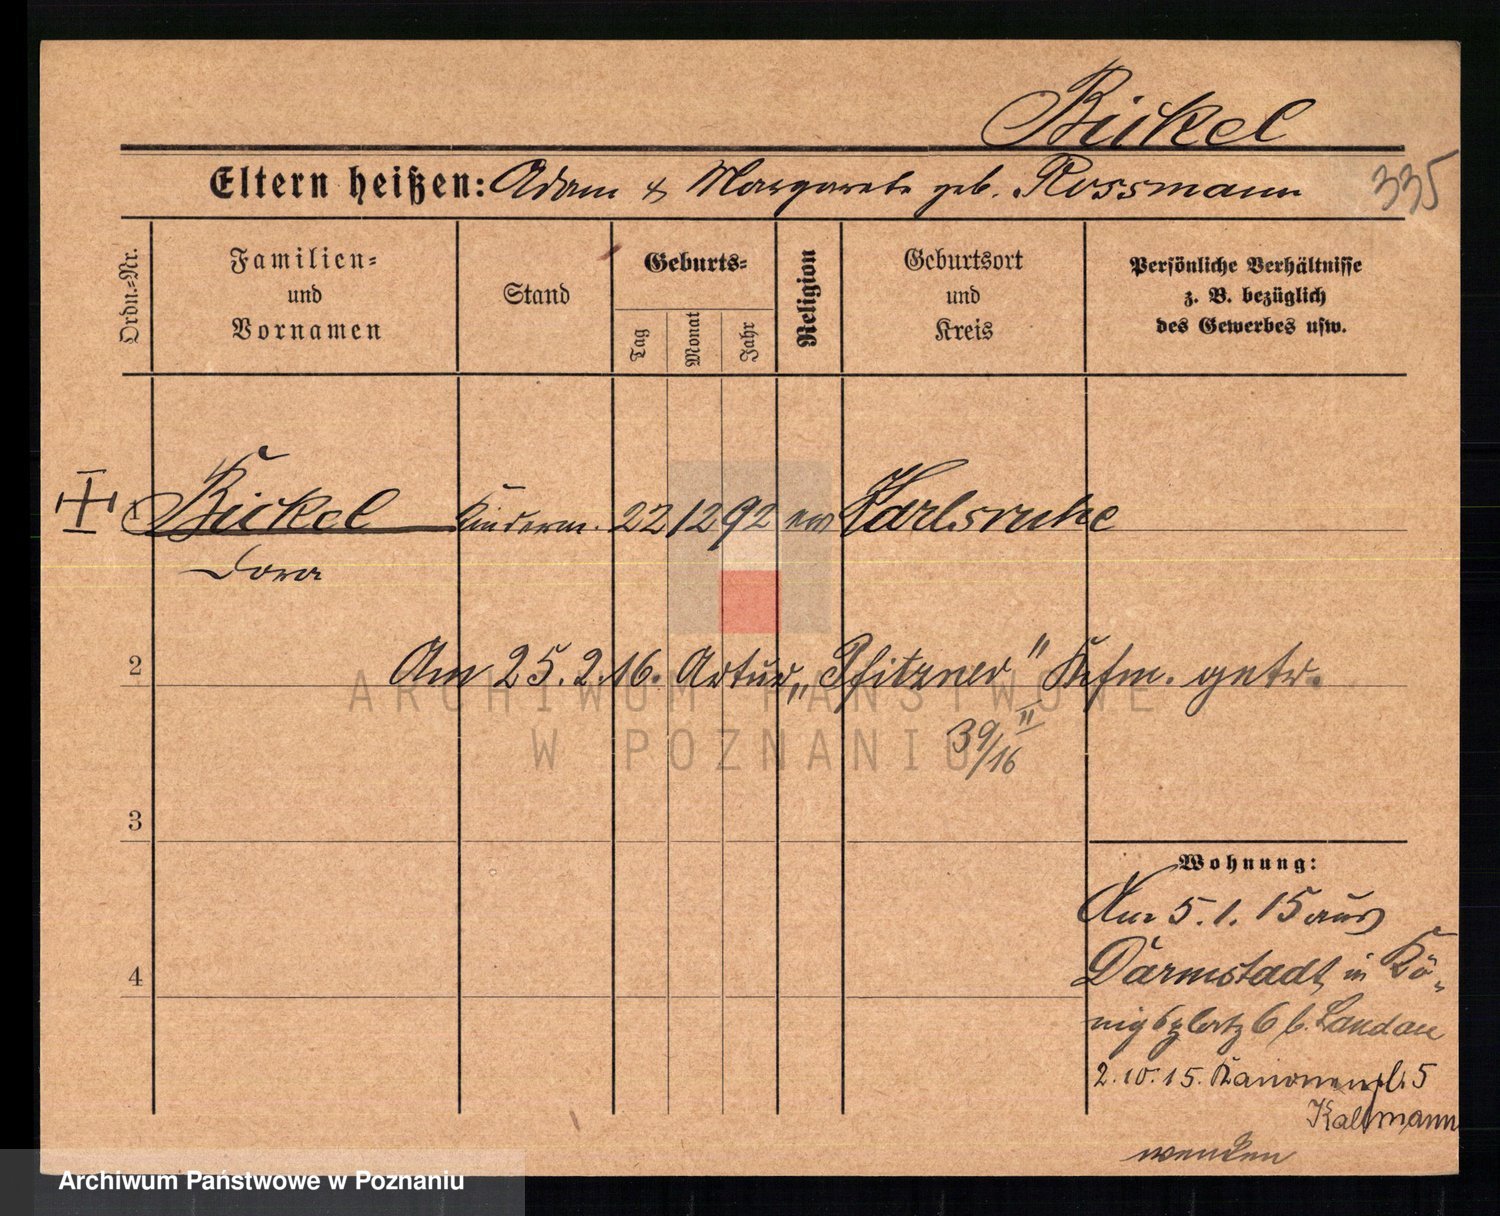 Bickel
Eltern heißen: Adam & Margarete geb. Rossmann
335
Ordn.-Nr.
Familien-
und
Vornamen
Stand
Geburts-
Tag
Monat
Jahr
Religion
Geburtsort
und
Kreis
Persönliche Verhältnisse
z. B. bezüglich
des Gewerbes usw.
1 Bickel Kinderm. 22 12 92 ev Karlsruhe
Dora
2 Am 25.2.16. Artur „Pfitzner" Kfm. getr.
39/16 II
3
Wohnung:
Am 5.1.15 aus
Darmstadt in Kö-
4
nigsplatz 6 b. Landau
2.10.15. Kanonenpl. 5
Kallmann
wenden
ARCHIWUM PAŃSTWOWE
W POZNANIU
Archiwum Państwowe w Poznaniu